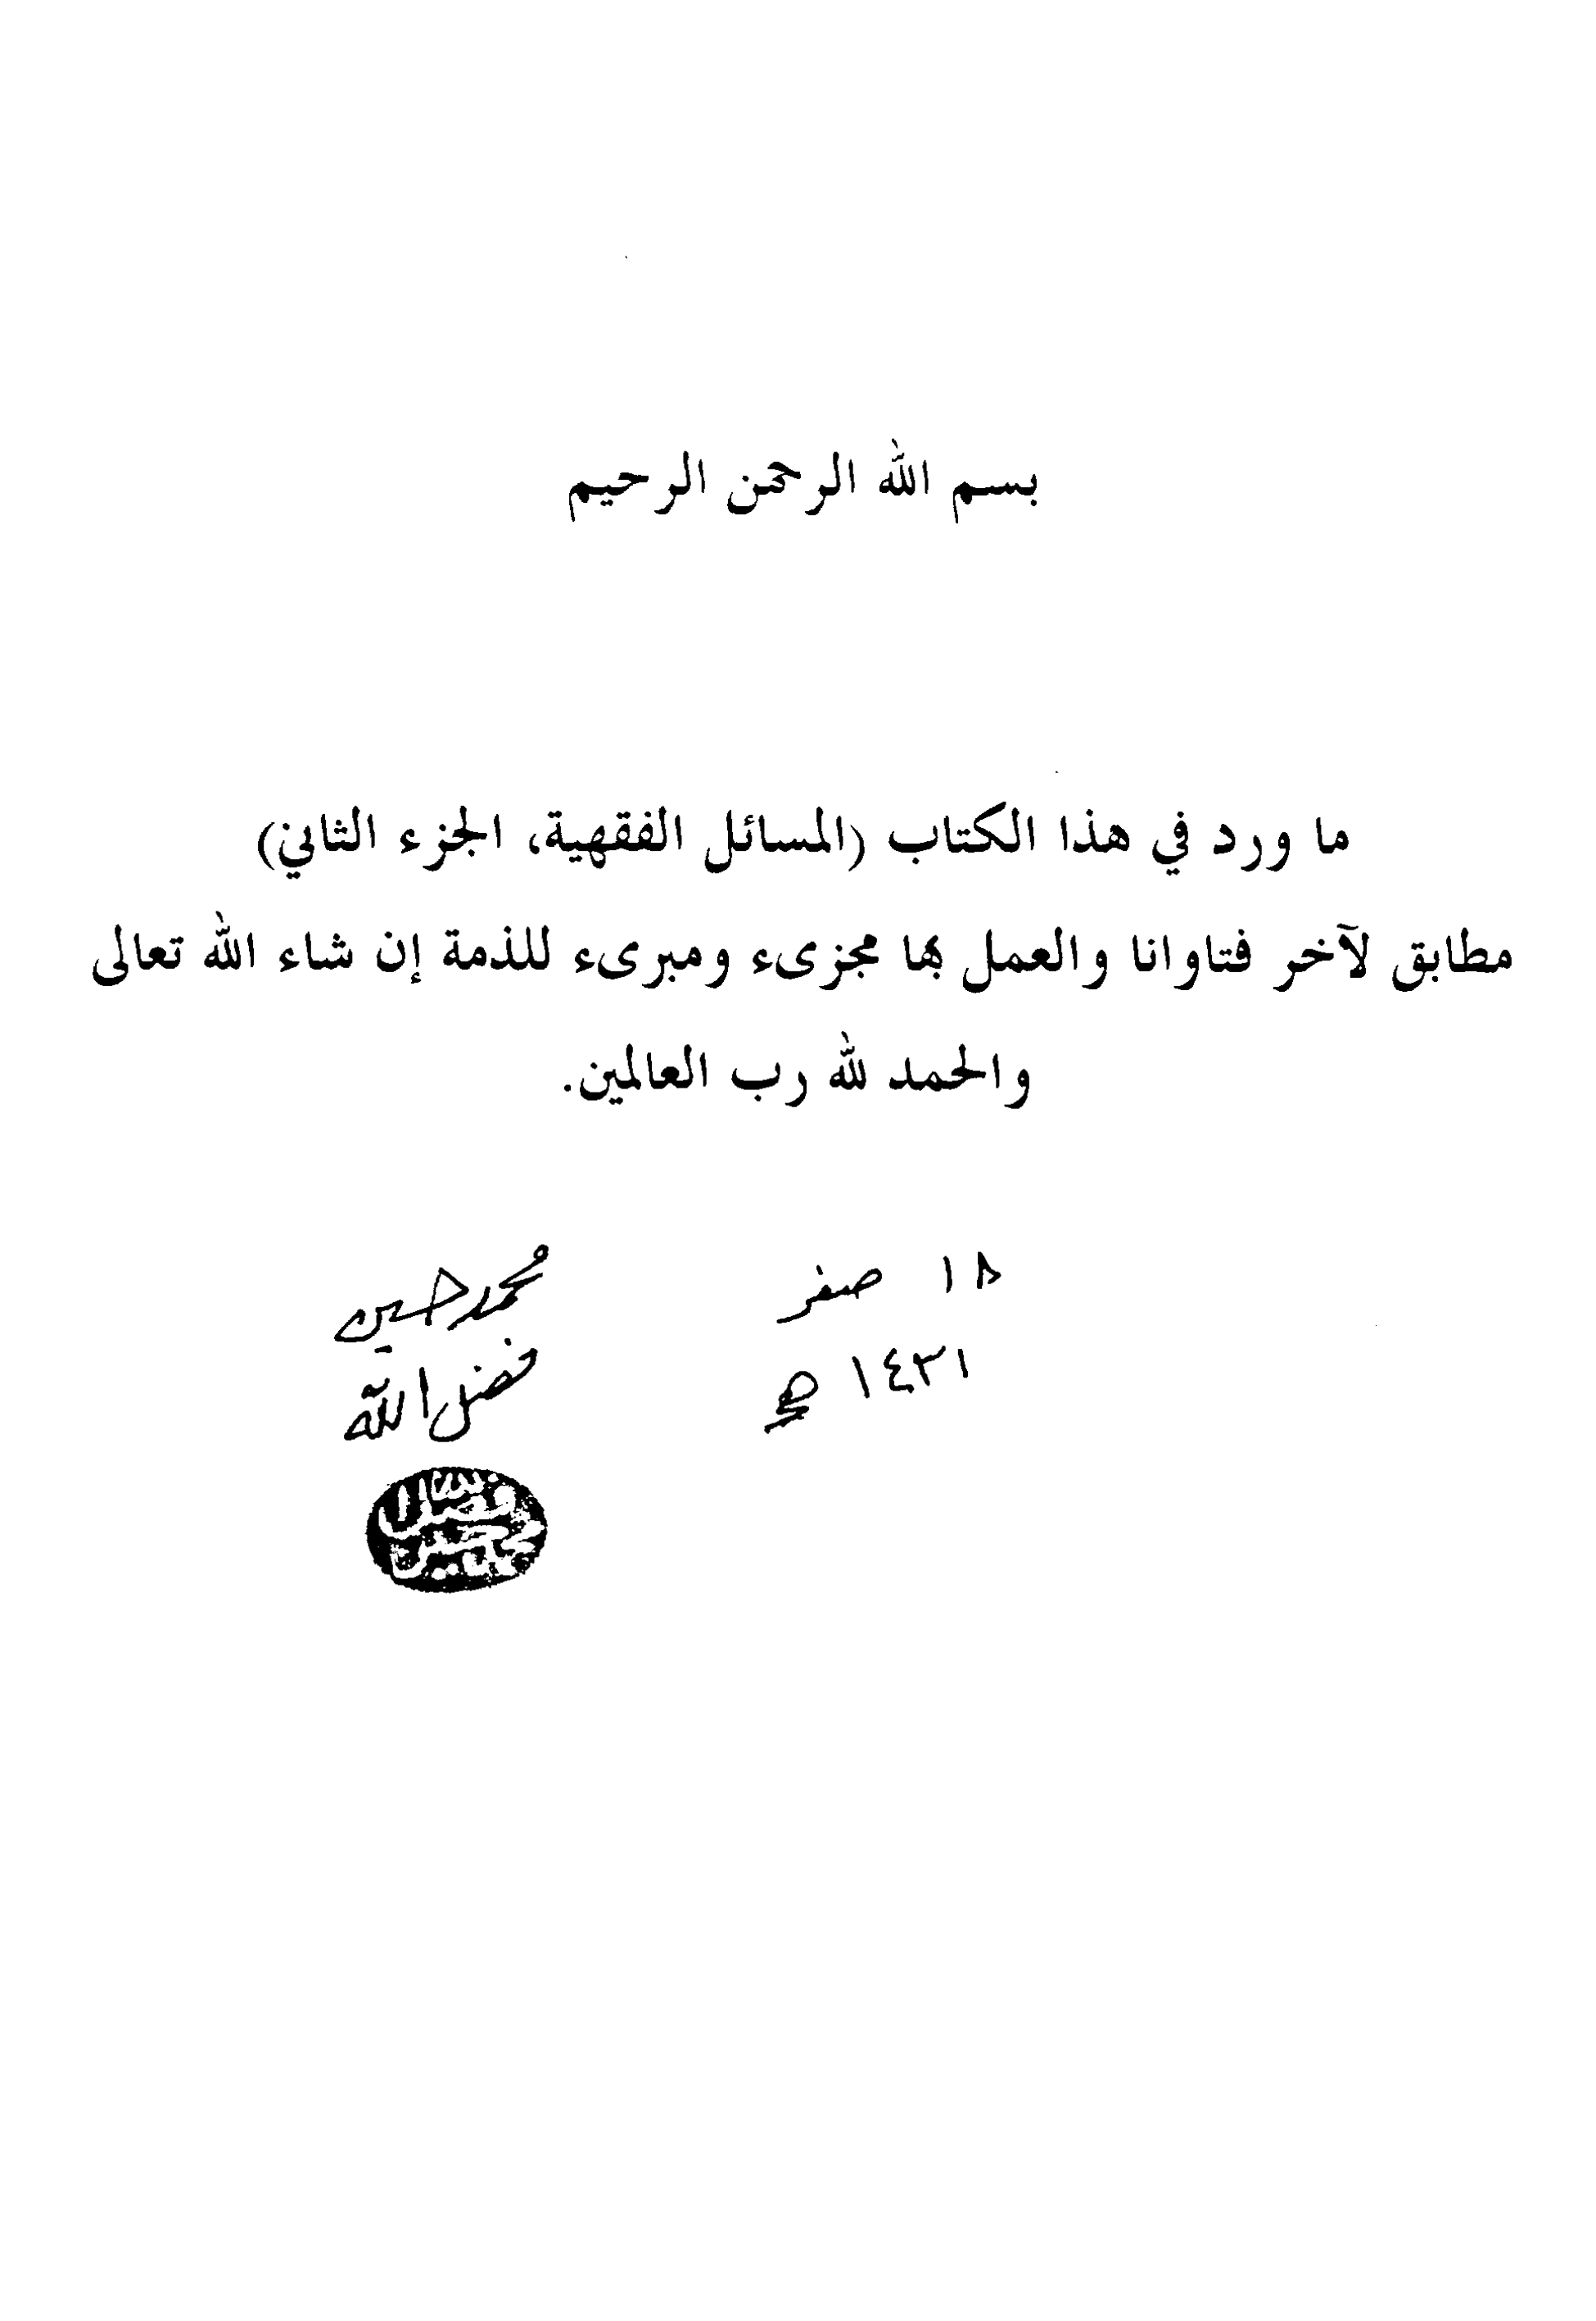 بسم الله الرحمن الرحيم
ما ورد في هذا الكتاب (المسائل الفقهية، الجزء الثاني)
مطابق لآخر فتاوانا والعمل بها مجزىء ومبرىء للذمة إن شاء الله تعالى
والحمد لله رب العالمين.
١٨ صفر
١٤٣١ هـ
محمد حسين
فضل الله
فضل الله
محمد حسين